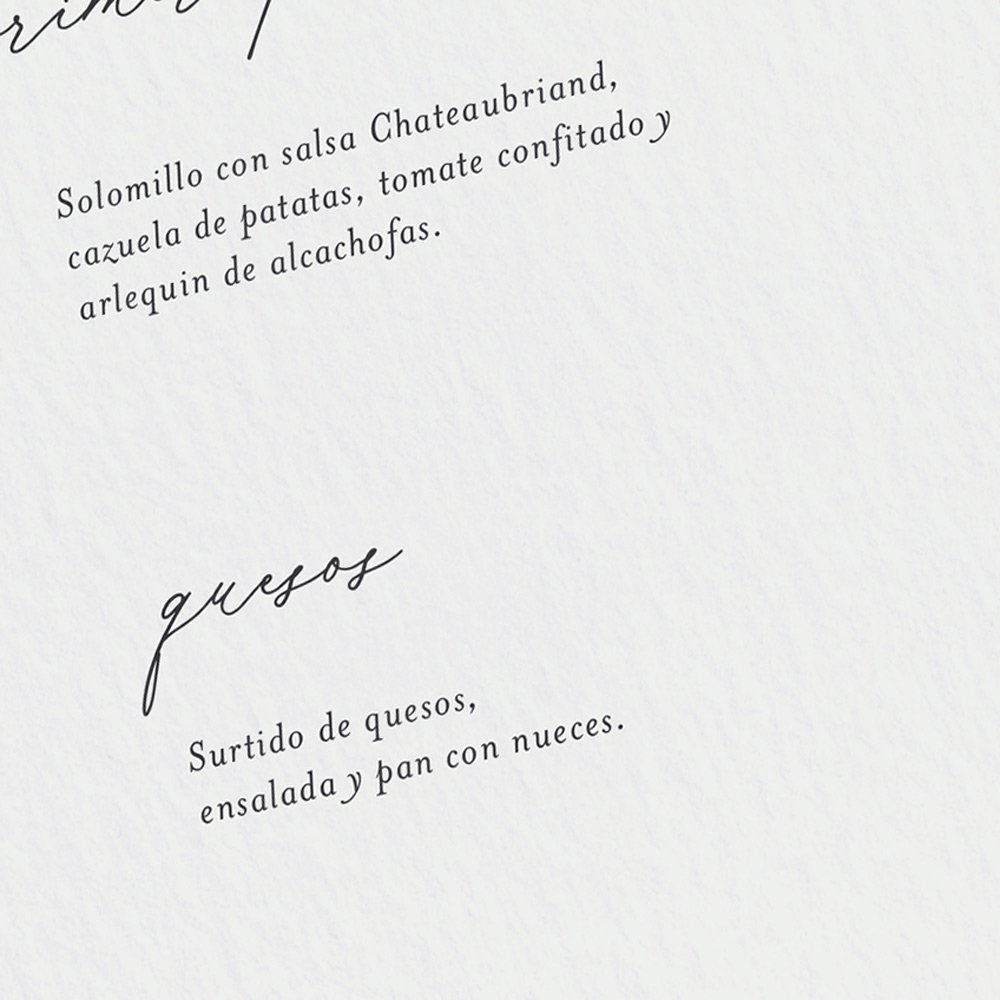 Solomillo con salsa Chateaubriand,
cazuela de patatas, tomate confitado y
arlequin de alcachofas.
quesos
Surtido de quesos,
ensalada y pan con nueces.